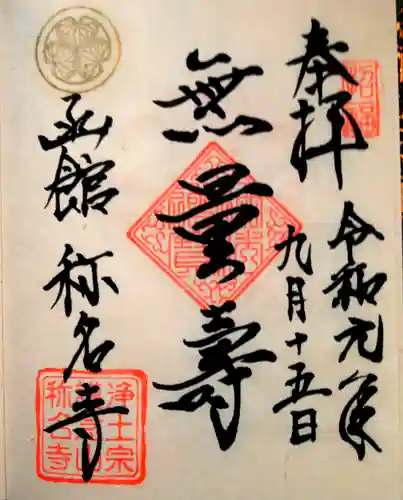 奉拝
令和元年
九月十五日
無量壽
函館
称名寺
浄土宗
称名寺